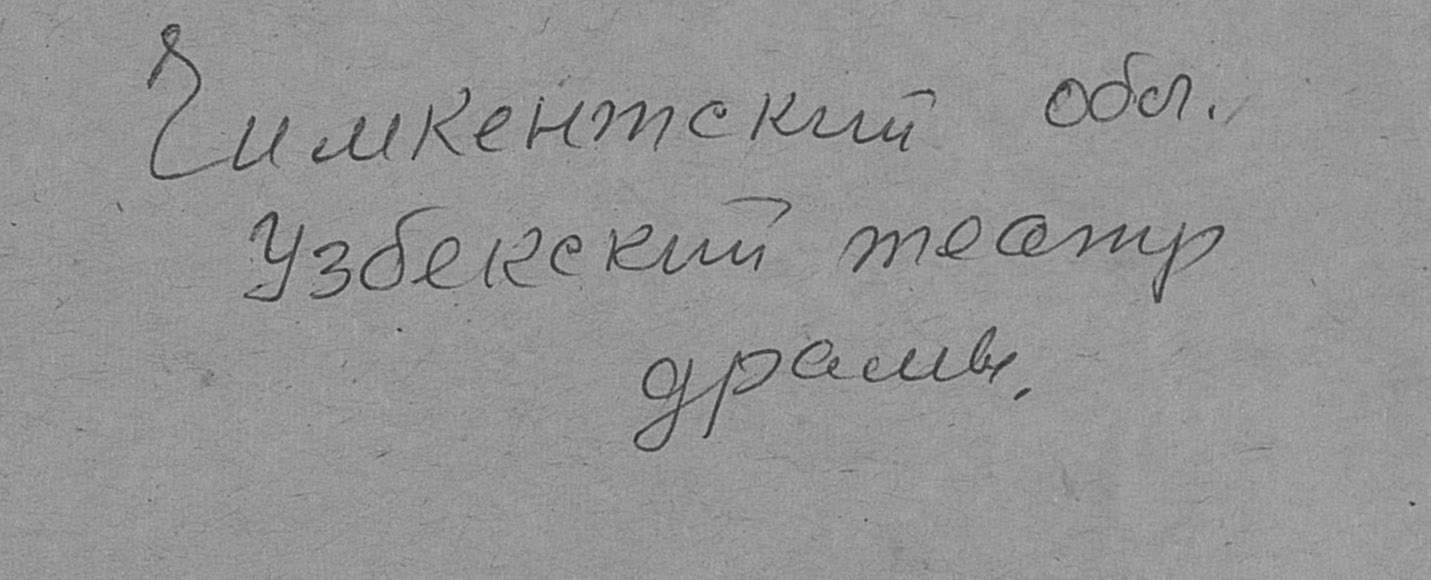 Чимкентский обл.
Узбекский театр
драмы.